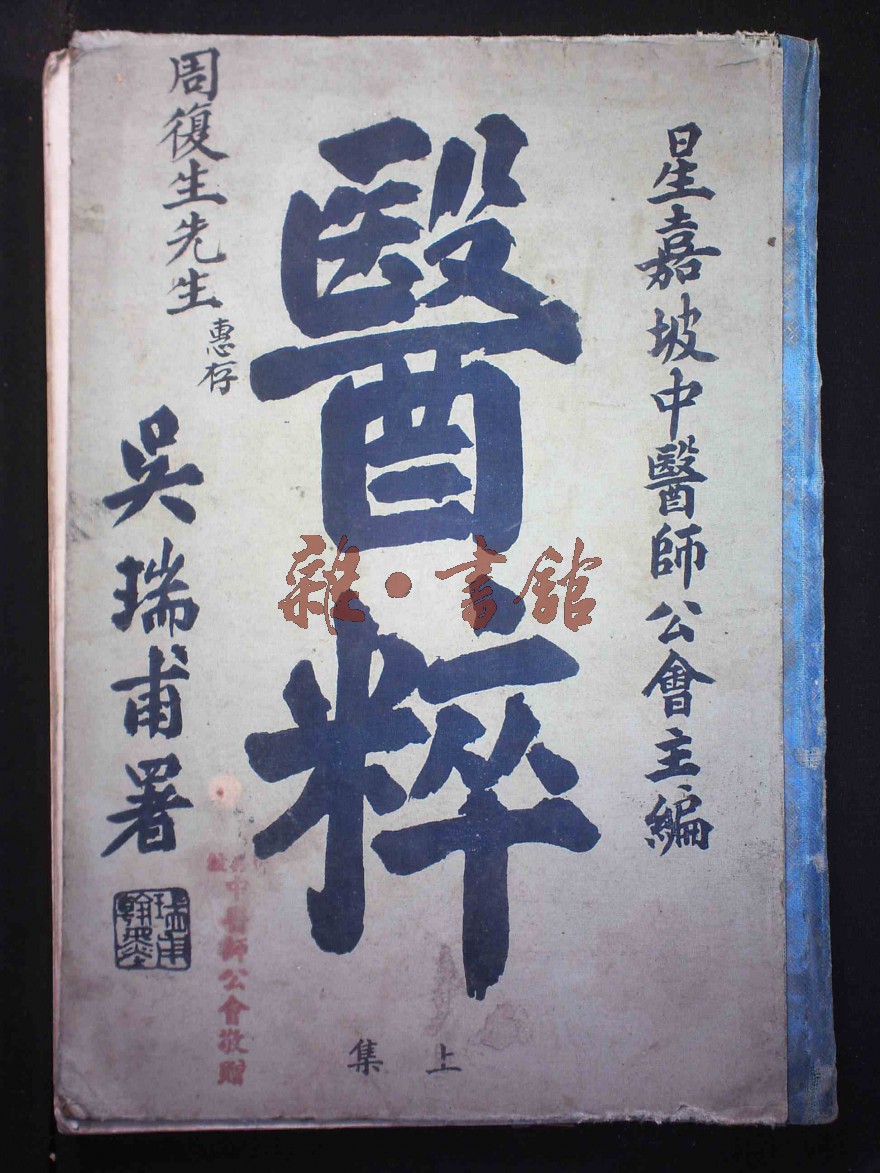 星嘉坡中醫師公會主編
醫粹
上集
周復生先生惠存
吳瑞甫署
瑞甫翰墨
中醫師公會敬贈
雜·書館